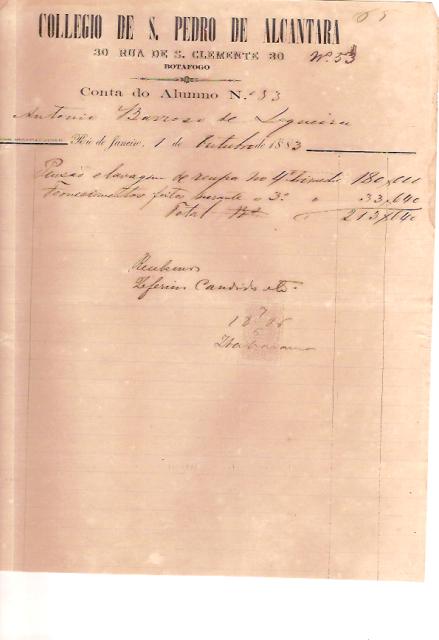 65
COLLEGIO DE S. PEDRO DE ALCANTARA
30 RUA DE S. CLEMENTE 30
Nº 53
BOTAFOGO
Conta do Alumno N.º 83
Antonio Barroso de Siqueira
Rio de Janeiro, 1 de Outubro de 1883
Pensão e lavagem de roupa no 4º trimestre 180,000
Fornecimentos feitos durante o 3º " 33,640
Total 213,640
Recebemos
Zeferino Candido